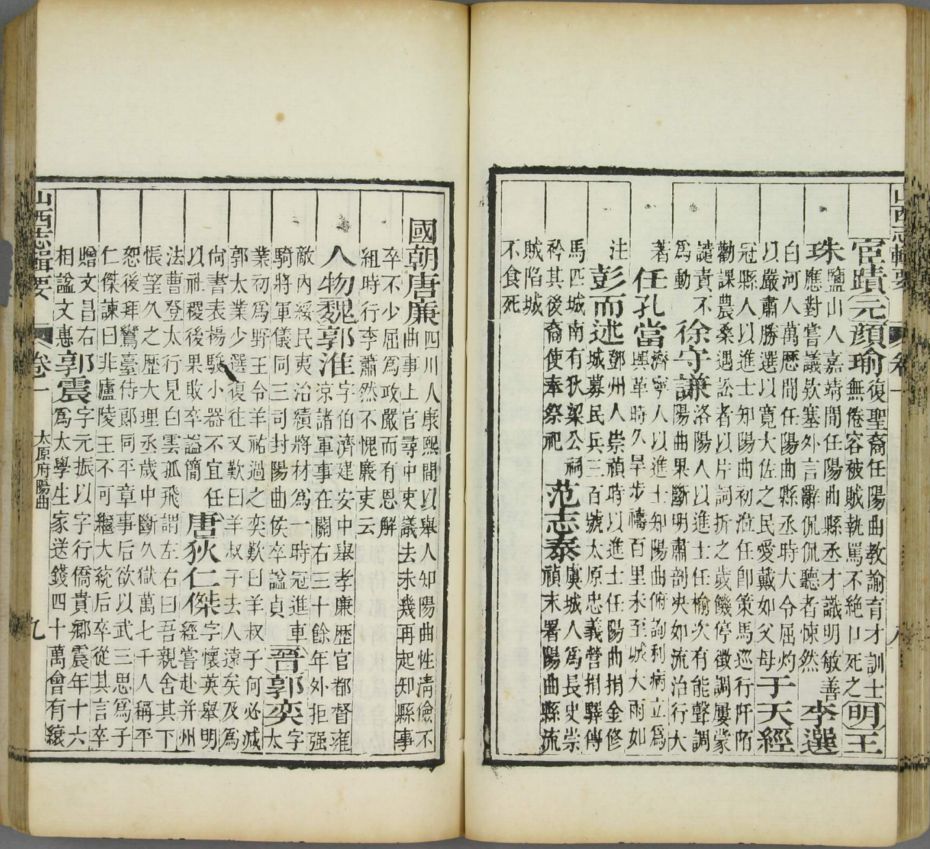 山西志輯要 卷一 八
宦蹟元顏瑜復聖裔任陽曲教諭育才訓士
無倦容被賊執罵不絕口死之明王
珠鹽山人嘉靖間任陽曲縣丞才識明敏善
應對嘗議欵塞外言辭侃侃聽者悚然李選
白河人萬歷間任陽曲縣丞時大令屈灼
以嚴肅勝選以寬大佐之民愛戴如父母于天經
冠縣人以進士知陽曲初涖任卽策馬巡行阡陌
勸課農桑遇訟者以片詞折之歲饑停徵調屢蒙
譴責不
為動徐守謙洛陽人以進士任榆次有能聲調
陽曲果斷明肅剖決如流治行大
著任孔當濟寧人以進士知陽曲俯詢利病立為
興革時久旱步禱百里未至城大雨如
注彭而述鄧州人崇禎時以進士任陽曲捐金修
城募民兵三百號太原忠義營捐驛傳
馬匹城南有狄梁公祠
矜其後裔使奉祭祀范志泰虞城人為長史崇
禎末署陽曲縣流
賊陷城
不食死
國朝唐廉四川人康熙間以舉人知陽曲性清儉不
曲事上官尋中吏議去未幾再起知縣事
卒不少屈為政嚴而有恩解
組時行李蕭然不愧廉吏云
人物魏郭淮字伯濟建安中舉孝廉歷官都督雍
涼諸軍事在關右三十餘年外拒强
敵內綏民夷治績將材為一時冠進車
騎將軍儀同三司封陽曲侯卒謚貞晉郭奕字太
業初為野王令羊祜過之奕歎曰羊叔子何必減
郭太業少選復往又歎曰羊叔子去人遠矣及為
尚書表楊駿小器不宜任
以社稷後果敗卒謚簡唐狄仁傑字懷英舉明
經嘗赴并州
法曹登太行見白雲孤飛謂左右曰吾親舍其下
悵望久之歷大理丞歲中斷久獄萬七千人人稱平
恕後拜鸞臺侍郎同平章事后欲以武三思為子
仁傑諫曰非盧陵王不可繼大統后卒從其言卒
贈文昌右
相謚文惠郭震字元振以字行僑貴鄉震年十六
為太學生家送錢四十萬會有縗
山西志輯要 卷一 太原府陽曲 九